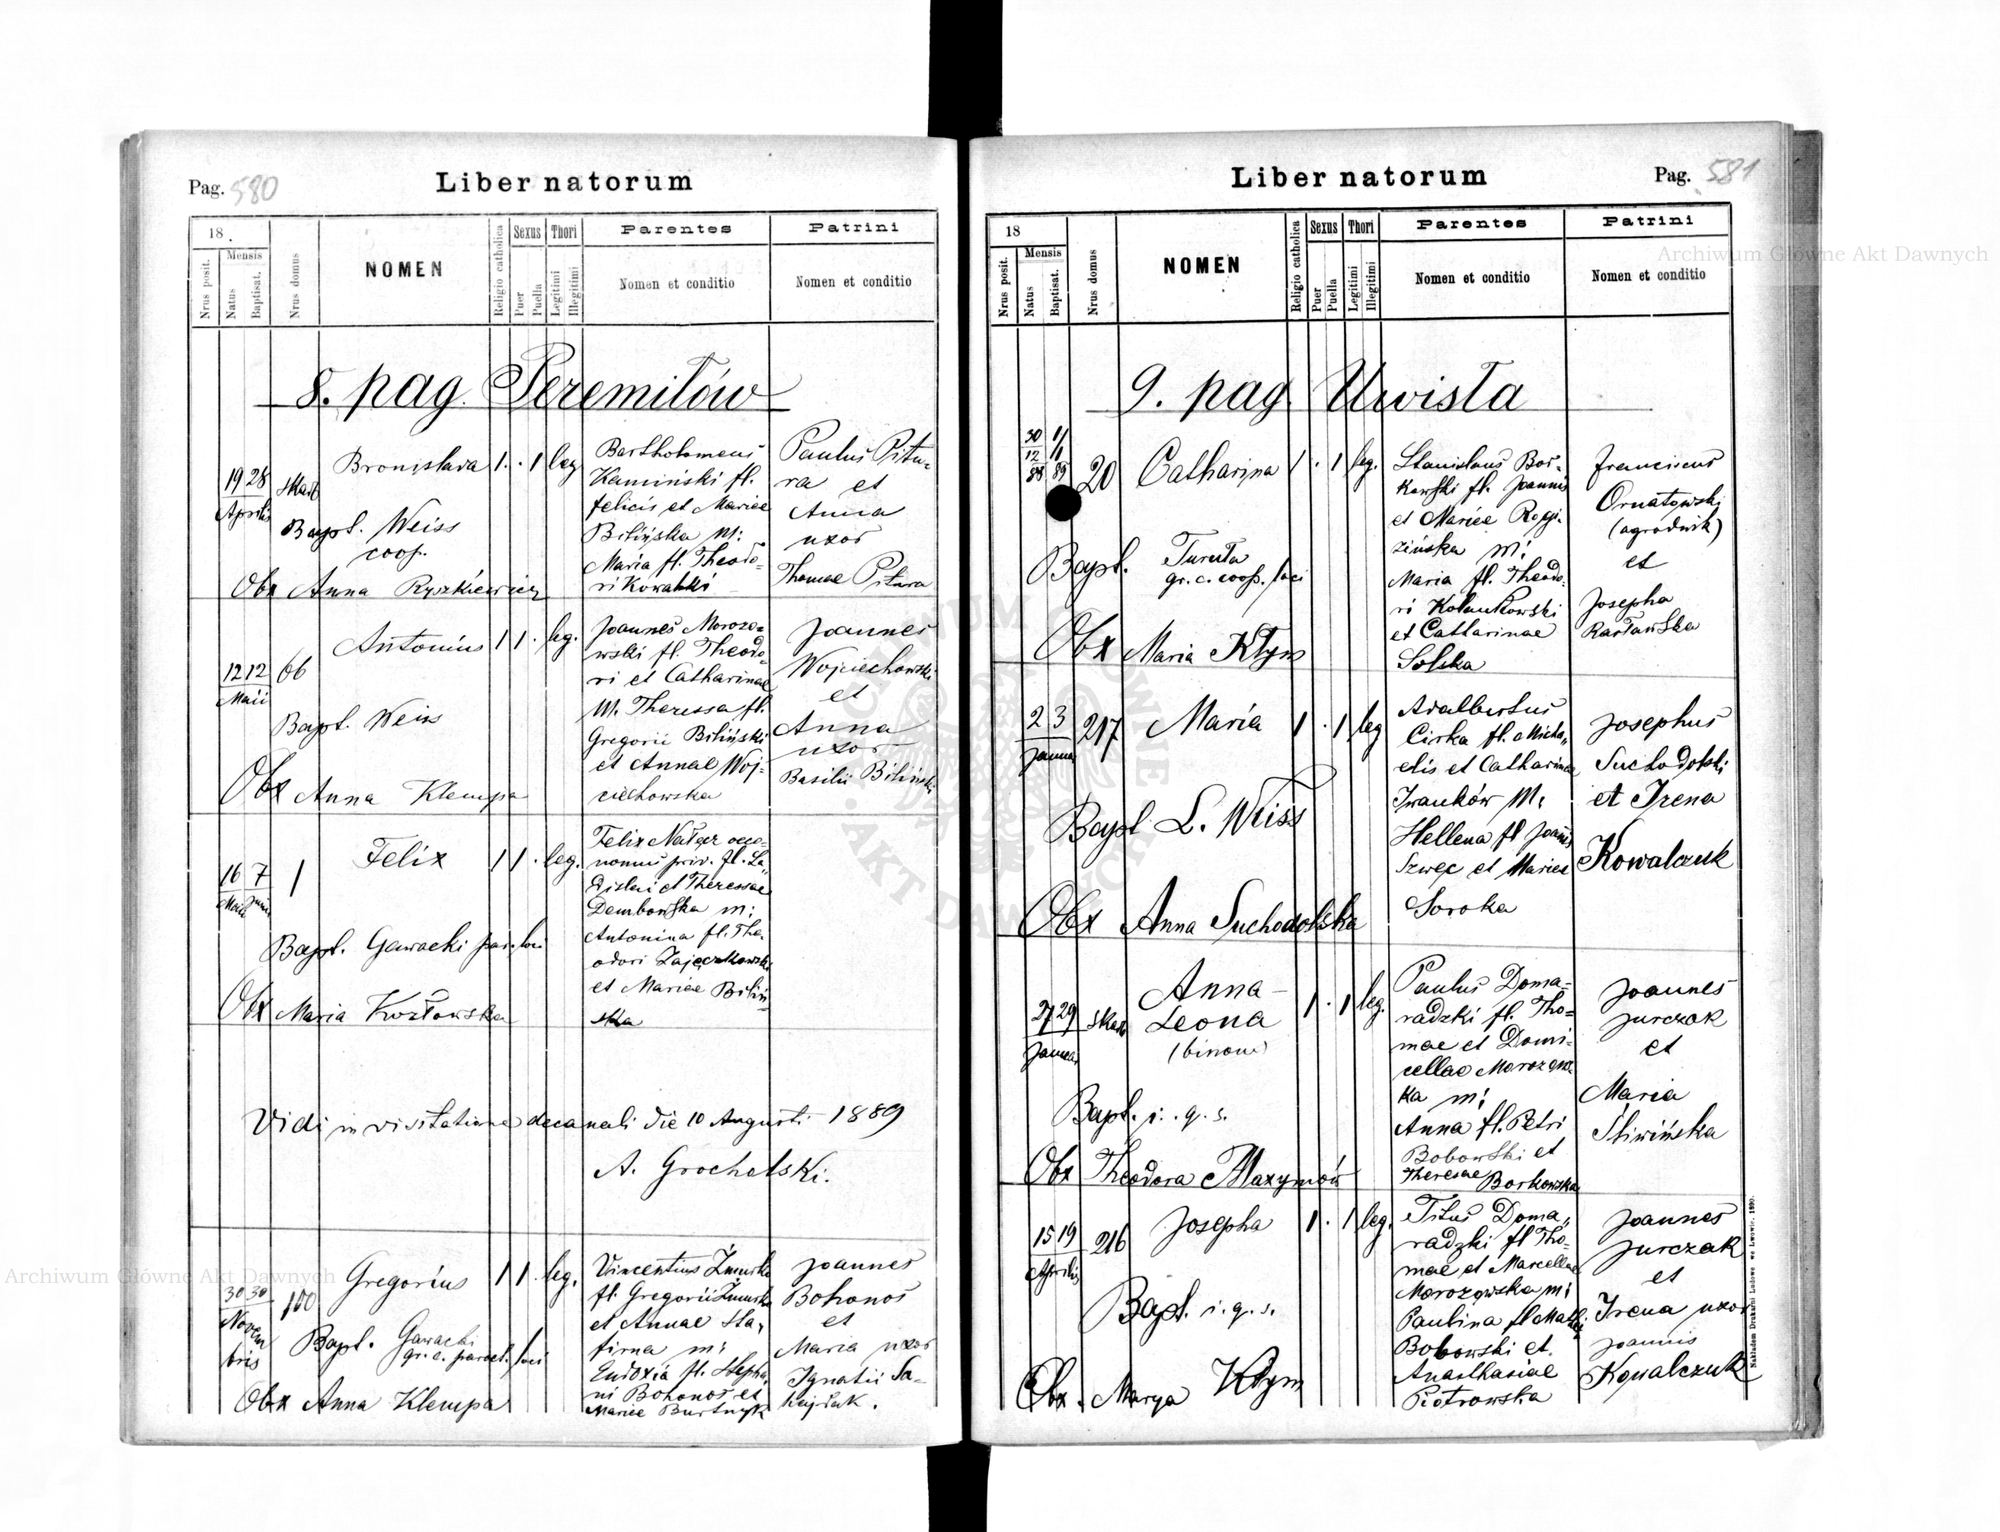 Pag. 580
Liber natorum
18 .
Nrus posit.
Mensis
Natus
Baptisat.
Nrus domus
NOMEN
Religio catholica
Sexus
Puer
Puella
Thori
Legitimi
Illegitimi
Parentes
Nomen et conditio
Patrini
Nomen et conditio
8. pag Peremiłów
19 28
Aprilis
Bronislava 1 . 1 leg
Bapt. Weiss
coop.
Obx Anna Ryszkiewicz
Bartholomeus
Kaminski fl.
felicis et Mariae
Bilińska m:
Maria fl. Theodo-
ri Kowalski
Paulus Pitu-
ra et
Anna
uxor
Thomae Pitura
12 12
Maii
66
Antonius 1 1 . leg.
Bapt. Weiss
Obx Anna Klempa
Joannes Morozo-
wski fl. Theodo-
ri et Catharinae
M. Theressa fl.
Gregorii Biliński
et Annae Woj-
ciechowska
Joannes
Wojciechowski
et
Anna
uxor
Basilii Biliński
16 7
Maii Junii
1
Felix 1 1 . leg.
Bapt. Gawacki par. loci
Obx Maria Kozłowska
Felix Nałęcz oeco-
nomus priv. fl. La-
dislai et Theressae
Dembowska m:
Antonina fl. Theo-
odori Zajączkowski
et Mariae Biliń
ska
Vidi in visitatione decanali die 10 Augusti 1889
A. Grochalski.
30 30
Novem
bris
100
Gregorius 1 1 . leg.
Bapt. Gawacki
gr. c. paroch. loci
Obx Anna Klempa
Vincentius Żmurko
fl. Gregorii Żmurko
et Annae Sta-
firna m:
Eudoxia fl. Stepha-
ni Bohonos et
Mariae Burtnyk
Joannes
Bohonos
et
Maria uxor
Ignatii
Pag. 581
Liber natorum
18
Nrus posit.
Mensis
Natus
Baptisat.
Nrus domus
NOMEN
Religio catholica
Sexus
Puer
Puella
Thori
Legitimi
Illegitimi
Parentes
Nomen et conditio
Patrini
Nomen et conditio
9. pag Uwisła
30 1/
12 1/
88 89
20
Catharina 1 . 1 leg.
Bapt. Tureuta
gr. c. coop. loci
Obx Maria Kłym
Stanislaus Bor-
kowski fl. Joannis
et Mariae Rogi-
zińska m:
Maria fl. Theodo-
ri Kolankowski
et Catharinae
Solska
Franciscus
Ornatowski
(agrodnik)
et
Josepha
Rasławska
2 3
Januar
217
Maria 1 . 1 leg
Bapt L. Weiss
Obx Anna Suchodolska
Adalbertus
Cirka fl. Micha-
elis et Catharinae
Iwanków M:
Hellena fl Joannis
Szwec et Mariae
Soroka
Josephus
Suchodolski
et Irena
Kowalczuk
27 29
Januar
Anna
Leona
(binom)
1 . 1 leg.
Bapt. i. q. s.
Obx Theodora Maxymów
Paulus Doma-
radzki fl. Tho-
mae et Domi-
cellae Morozows-
ka m:
Anna fl. Petri
Bobowski et
Theresae Borkowska
Joannes
Jurczak
et
Maria
Śliwińska
15 19
Aprilis
216
Josepha 1 . 1 leg.
Bapt. i. q. s.
Obx . Marya Kłym
Titus Doma-
radzki fl Tho-
mae et Marcellae
Morozowska m:
Paulina fl Mathi
Bobowski et
Anasthasiae
Piotrowska
Joannes
Jurczak
et
Irena uxor
Joannis
Kowalczuk
Nakładem Drukarni Ludowe we Lwowie. 1890.
Archiwum Główne Akt Dawnych
Archiwum Główne Akt Dawnych